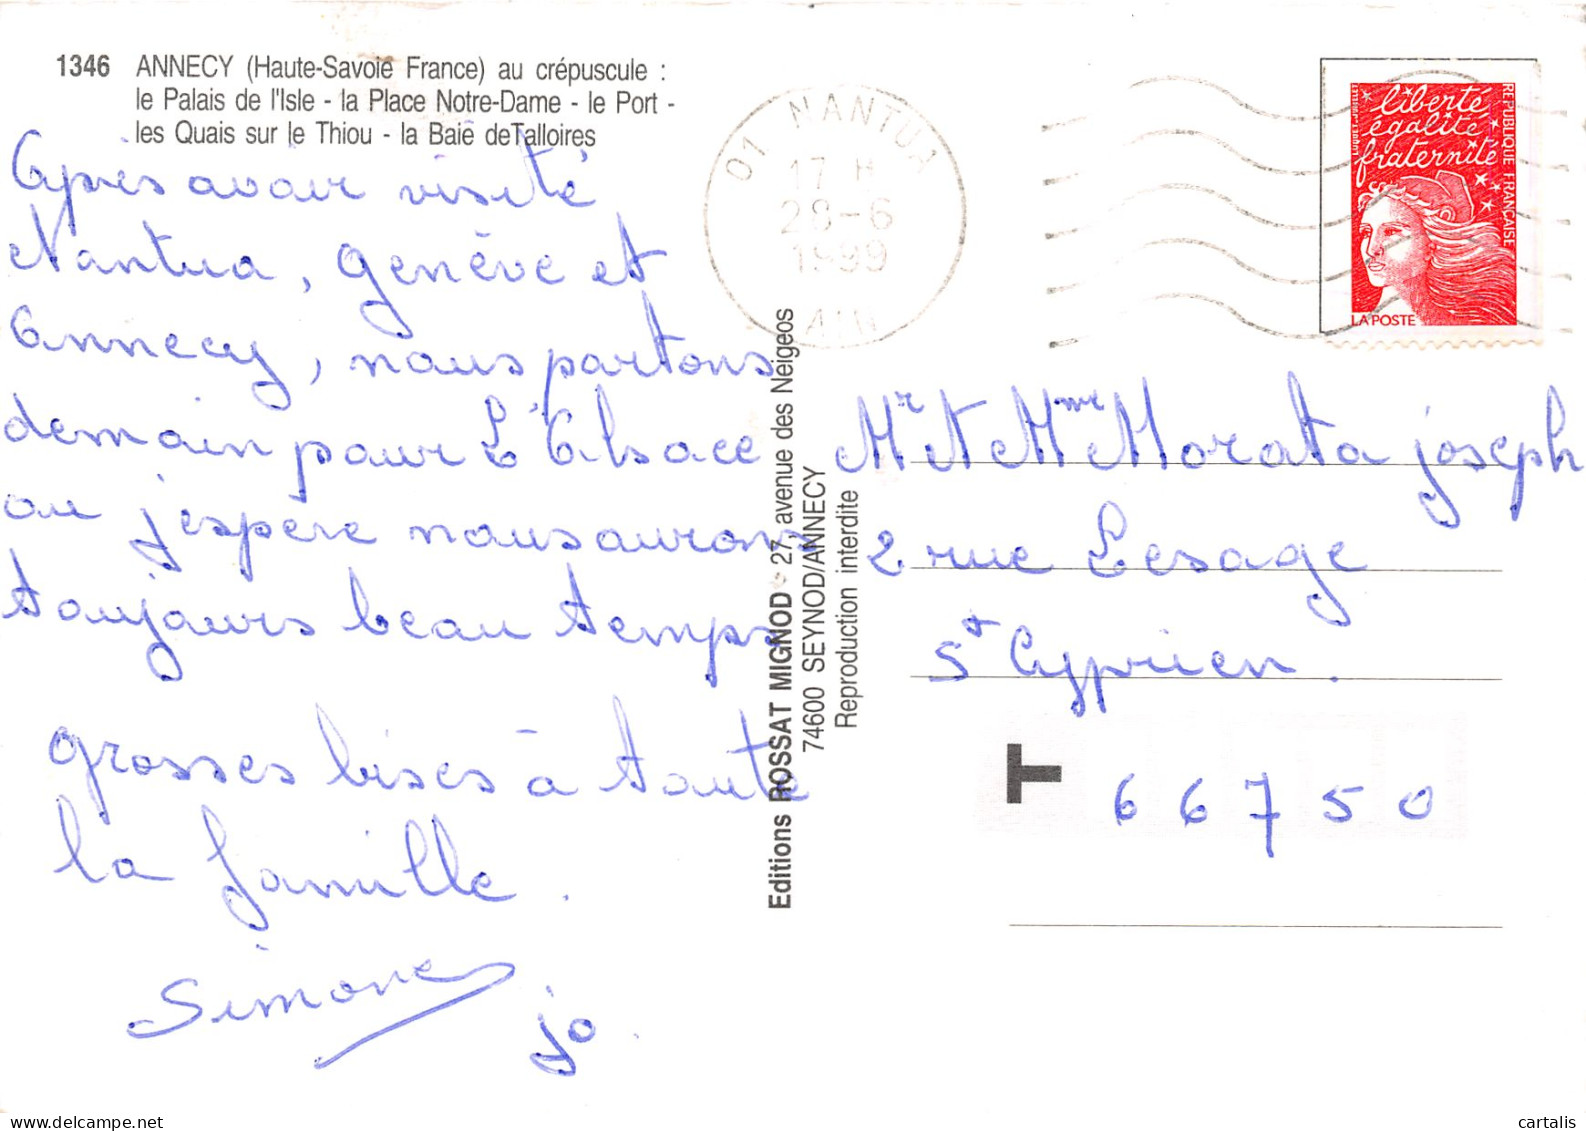 1346 ANNECY (Haute-Savoie France) au crépuscule :
le Palais de l'Isle - la Place Notre-Dame - le Port -
les Quais sur le Thiou - la Baie de Talloires
Après avoir visité
Nantua, Genève et
Annecy, nous partons
demain pour L'Alsace
ou j'espère nous aurons
toujours beau temps
grosses bises à toute
la famille.
Simone
jo.
Editions ROSSAT MIGNOD - 27, avenue des Neigeos
74600 SEYNOD/ANNECY
Reproduction interdite
01 NANTUA
17 H
28-6
1999
AIN
liberté
égalité
fraternité
RÉPUBLIQUE FRANÇAISE
LA POSTE
Mr et Mme Morata joseph
2 rue Lesage
St Cyprien.
T 66750
delcampe.net
cartalis